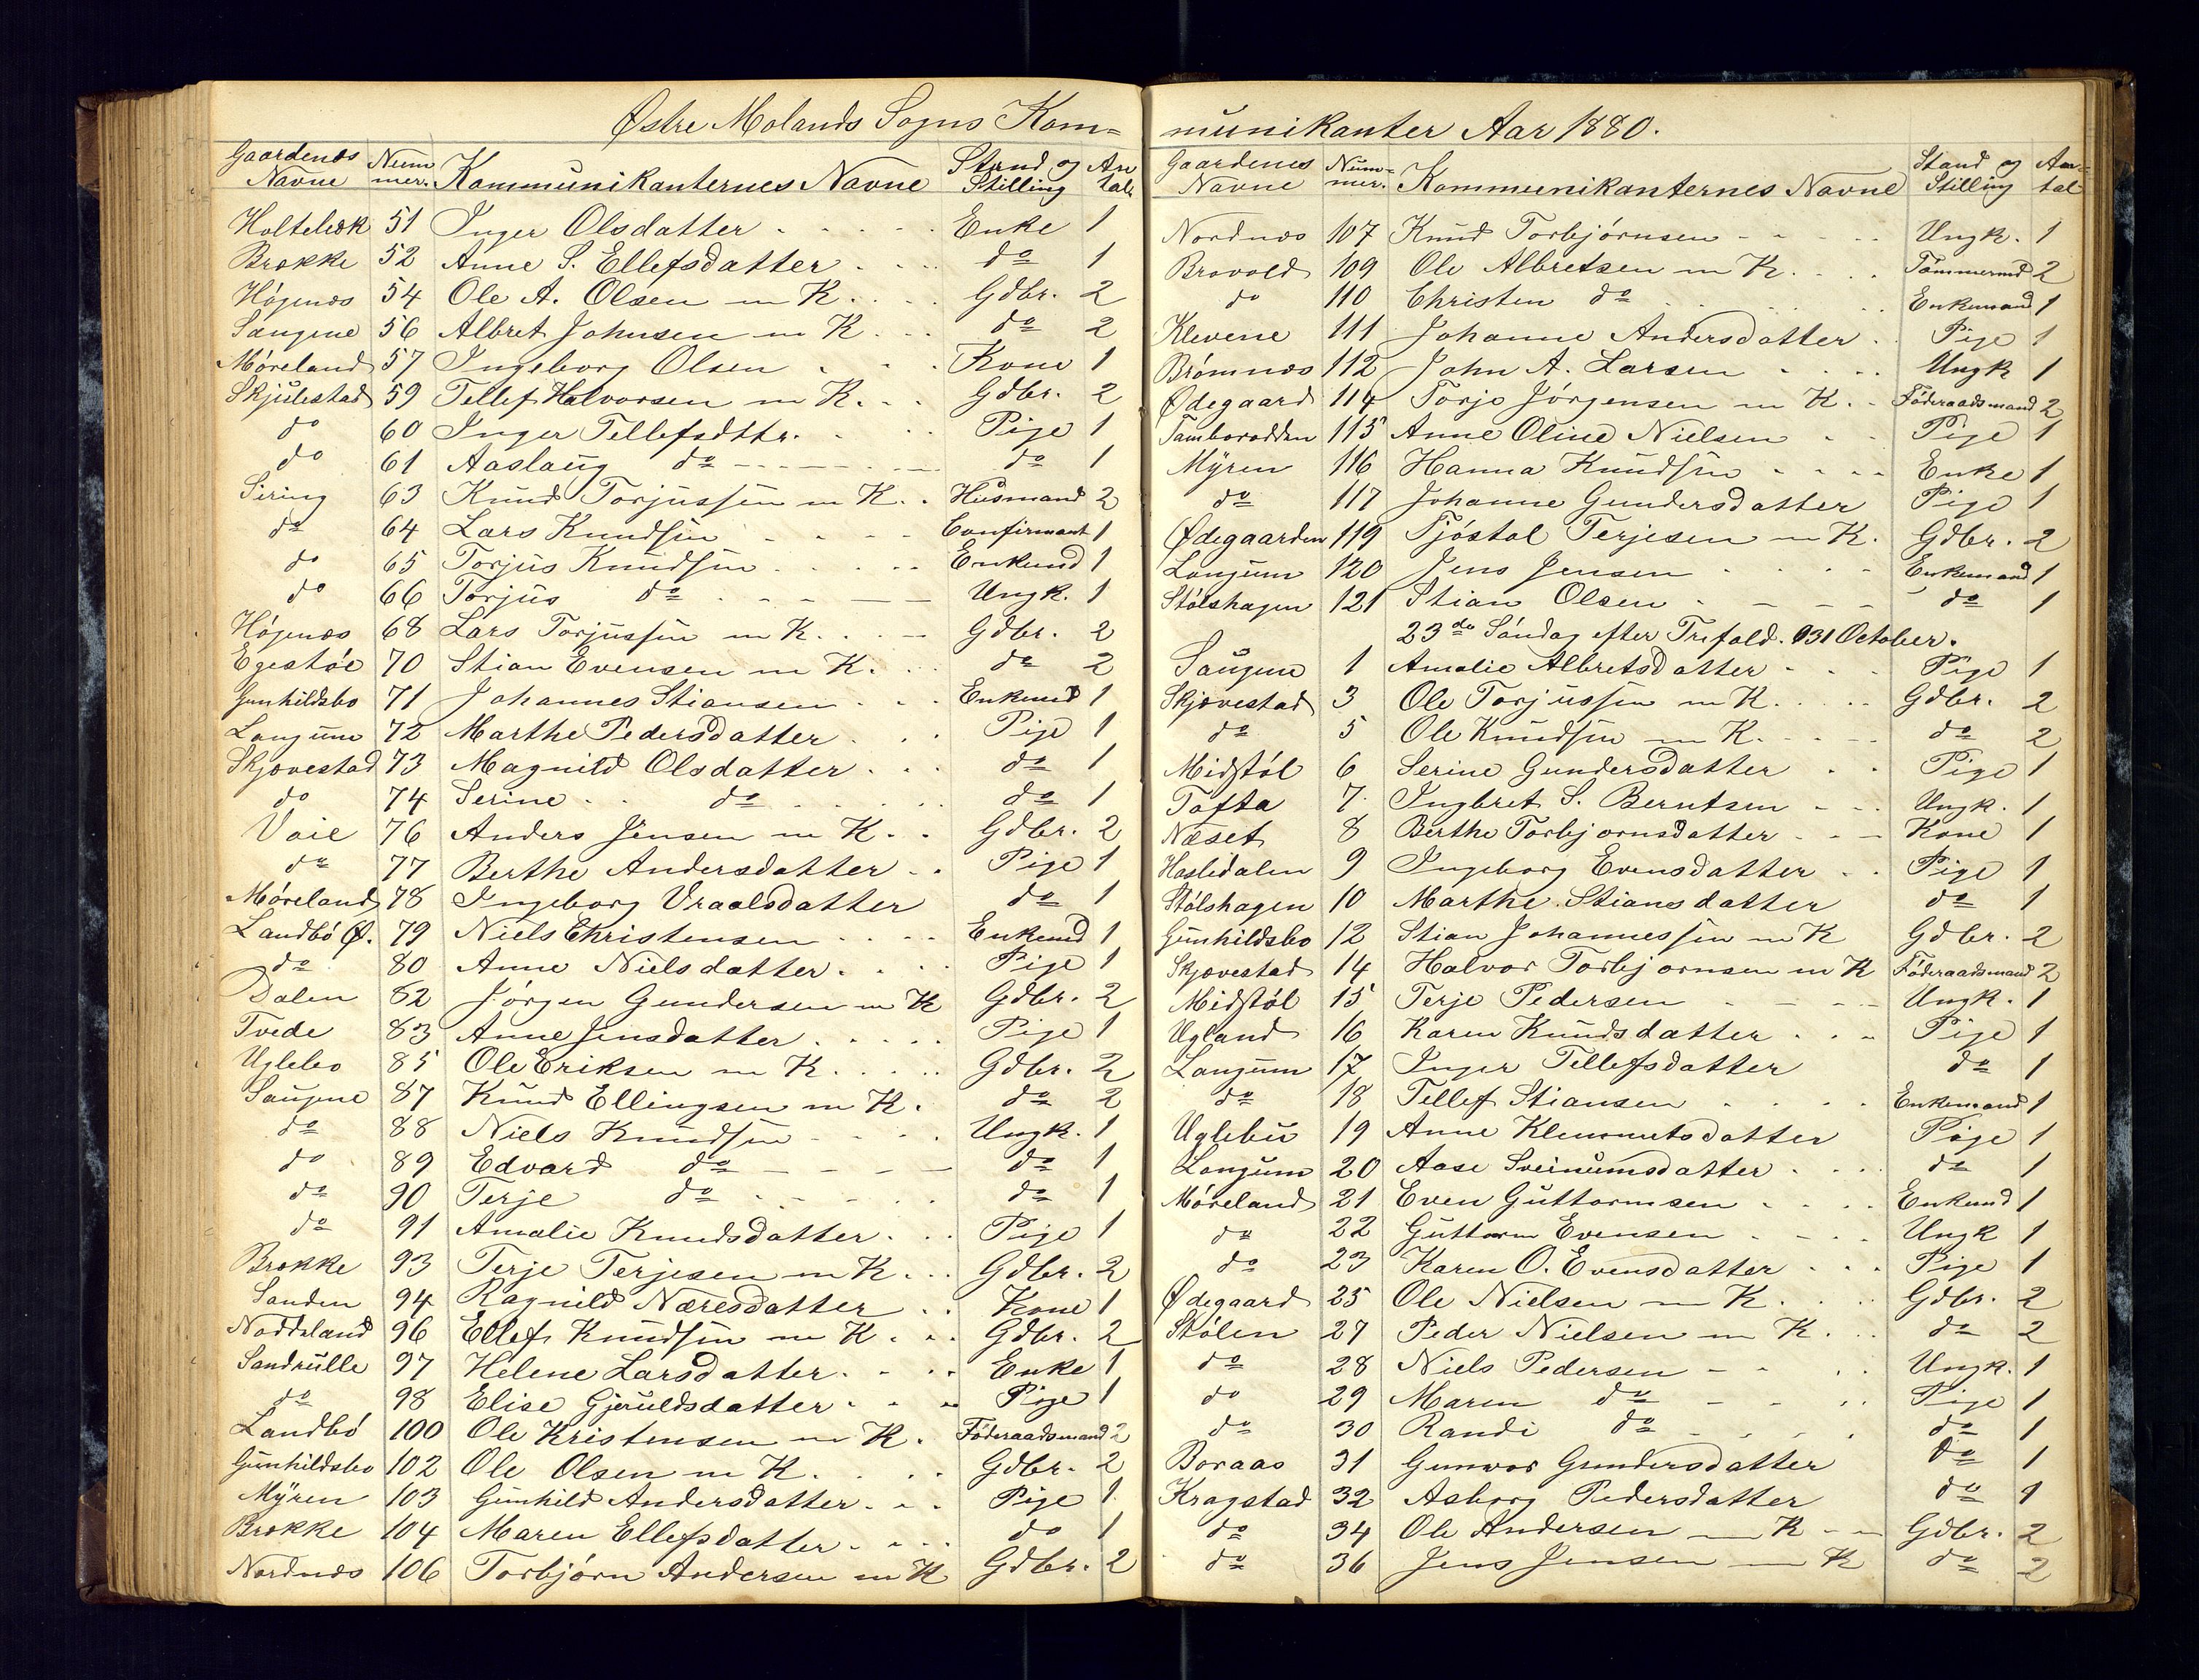 Østre Molands Sogns Kom=
Gaardenes Navne Num mer. Kommunikanternes Navne Stand og Stilling An tal.
Holtebæk 51 Inger Olsdatter Enke 1
Brække 52 Anne S. Ellefsdatter do 1
Høgenæs 54 Ole A. Olsen m K. Gdbr. 2
Saugene 56 Albret Johnsen m K do 2
Møreland 57 Ingeborg Olsen Kone 1
Skjulestad 59 Tellef Halvorsen m K. Gdbr. 2
do 60 Inger Tellefsdttr. Pige 1
do 61 Aaslaug do do 1
Sering 63 Knud Torjussen m K. Husmand 2
do 64 Lars Knudsen Confirmant 1
do 65 Torjus Knudsen Enkemd 1
do 66 Torjus do Ungk. 1
Høgenæs 68 Lars Torjussen m K. Gdbr. 2
Egestøl 70 Stian Evensen m K. do 2
Gunhildsbo 71 Johannes Stiansen Enkemd 1
Langum 72 Marthe Pedersdatter Pige 1
Skjævestad 73 Magnild Olsdatter do 1
do 74 Serine do do 1
Vaie 76 Anders Jensen m K. Gdbr. 2
do 77 Berthe Andersdatter Pige 1
Møreland 78 Ingeborg Vraalsdatter do 1
Landbø Ø. 79 Niels Christensen Enkemd 1
do 80 Anne Nielsdatter Pige 1
Dalen 82 Jørgen Gundersen m K Gdbr. 2
Tvede 83 Anne Jensdatter Pige 1
Uglebo 85 Ole Eriksen m K. Gdbr. 2
Saugene 87 Knud Ellingsen m K. do 2
do 88 Niels Knudsen Ungk. 1
do 89 Edvard do do 1
do 90 Terje do do 1
do 91 Amalie Knudsdatter Pige 1
Brække 93 Terje Terjesen m K. Gdbr. 2
Sanden 94 Ragnild Næresdatter Kone 1
Noddeland 96 Ellef Knudsen m K. Gdbr. 2
Sandrulle 97 Helene Larsdatter Enke 1
do 98 Elise Gjeruldsdatter Pige 1
Landbø 100 Ole Kristensen m K. Föderaadsmand 2
Gunhildsbo 102 Ole Olsen m K. Gdbr. 2
Myren 103 Gunhild Andersdatter Pige 1
Brække 104 Maren Ellefsdatter do 1
Nordnæs 106 Torbjørn Andersen m K Gdbr. 2
munikanter Aar 1880.
Gaardenes Navne Num= mer. Kommunikanternes Navne Stand og Stilling An= tal
Nordnæs 107 Knud Torbjørnsen Ungk. 1
Brovold 109 Ole Albretsen m K. Tømmermd 2
do 110 Christen do Enkemand 1
Klevene 111 Johanne Andersdatter Pige 1
Brømnæs 112 John A. Larsen Ungk 1
Ødegaard 114 Torjo Jørgensen m K. Föderaadsmand 2
Tamborodden 115 Anne Oline Nielsen Pige 1
Myren 116 Hanna Knudsen Enke 1
do 117 Johanne Gundersdatter Pige 1
Ødegaarden 119 Tjøstol Terjesen m K. Gdbr. 2
Langum 120 Jens Jensen Enkemand 1
Stølshagen 121 Stian Olsen do 1
23de Søndag efter Trefold. 31 October.
Saugene 1 Amalie Albretsdatter Pige 1
Skjævestad 3 Ole Torjussen m K. Gdbr. 2
do 5 Ole Knudsen m K. do 2
Midstøl 6 Serine Gundersdatter Pige 1
Tofta 7 Ingbret S. Berntsen Ungk. 1
Næset 8 Berthe Torbjornsdatter Kone 1
Hasledalen 9 Ingeborg Evensdatter Pige 1
Stølshagen 10 Marthe Stiansdatter do 1
Gunhildsbo 12 Stian Johannessen m K Gdbr. 2
Skjævestad 14 Halvor Torbjornsen m K Föderaadsmand 2
Midstøl 15 Terje Pedersen Ungk. 1
Ugland 16 Karen Knudsdatter Pige 1
Langum 17 Inger Tellefsdatter do 1
do 18 Tellef Stiansen Enkemand 1
Uglebu 19 Anne Klemmetsdatter Pige 1
Langum 20 Aase Sveinumsdatter do 1
Møreland 21 Even Guttormsen Enkemd 1
do 22 Guttorm Evensen Ungk 1
do 23 Karen O. Evensdatter Pige 1
Ødegaard 25 Ole Nielsen m K. Gdbr. 2
Stølen 27 Peder Nielsen m K. do 2
do 28 Niels Pedersen Ungk. 1
do 29 Maren do Pige 1
do 30 Randi do do 1
Boraas 31 Gunvor Gundersdatter do 1
Kragstad 32 Asborg Pedersdatter do 1
do 34 Ole Andersen m K Gdbr. 2
do 36 Jens Jensen m K do 2